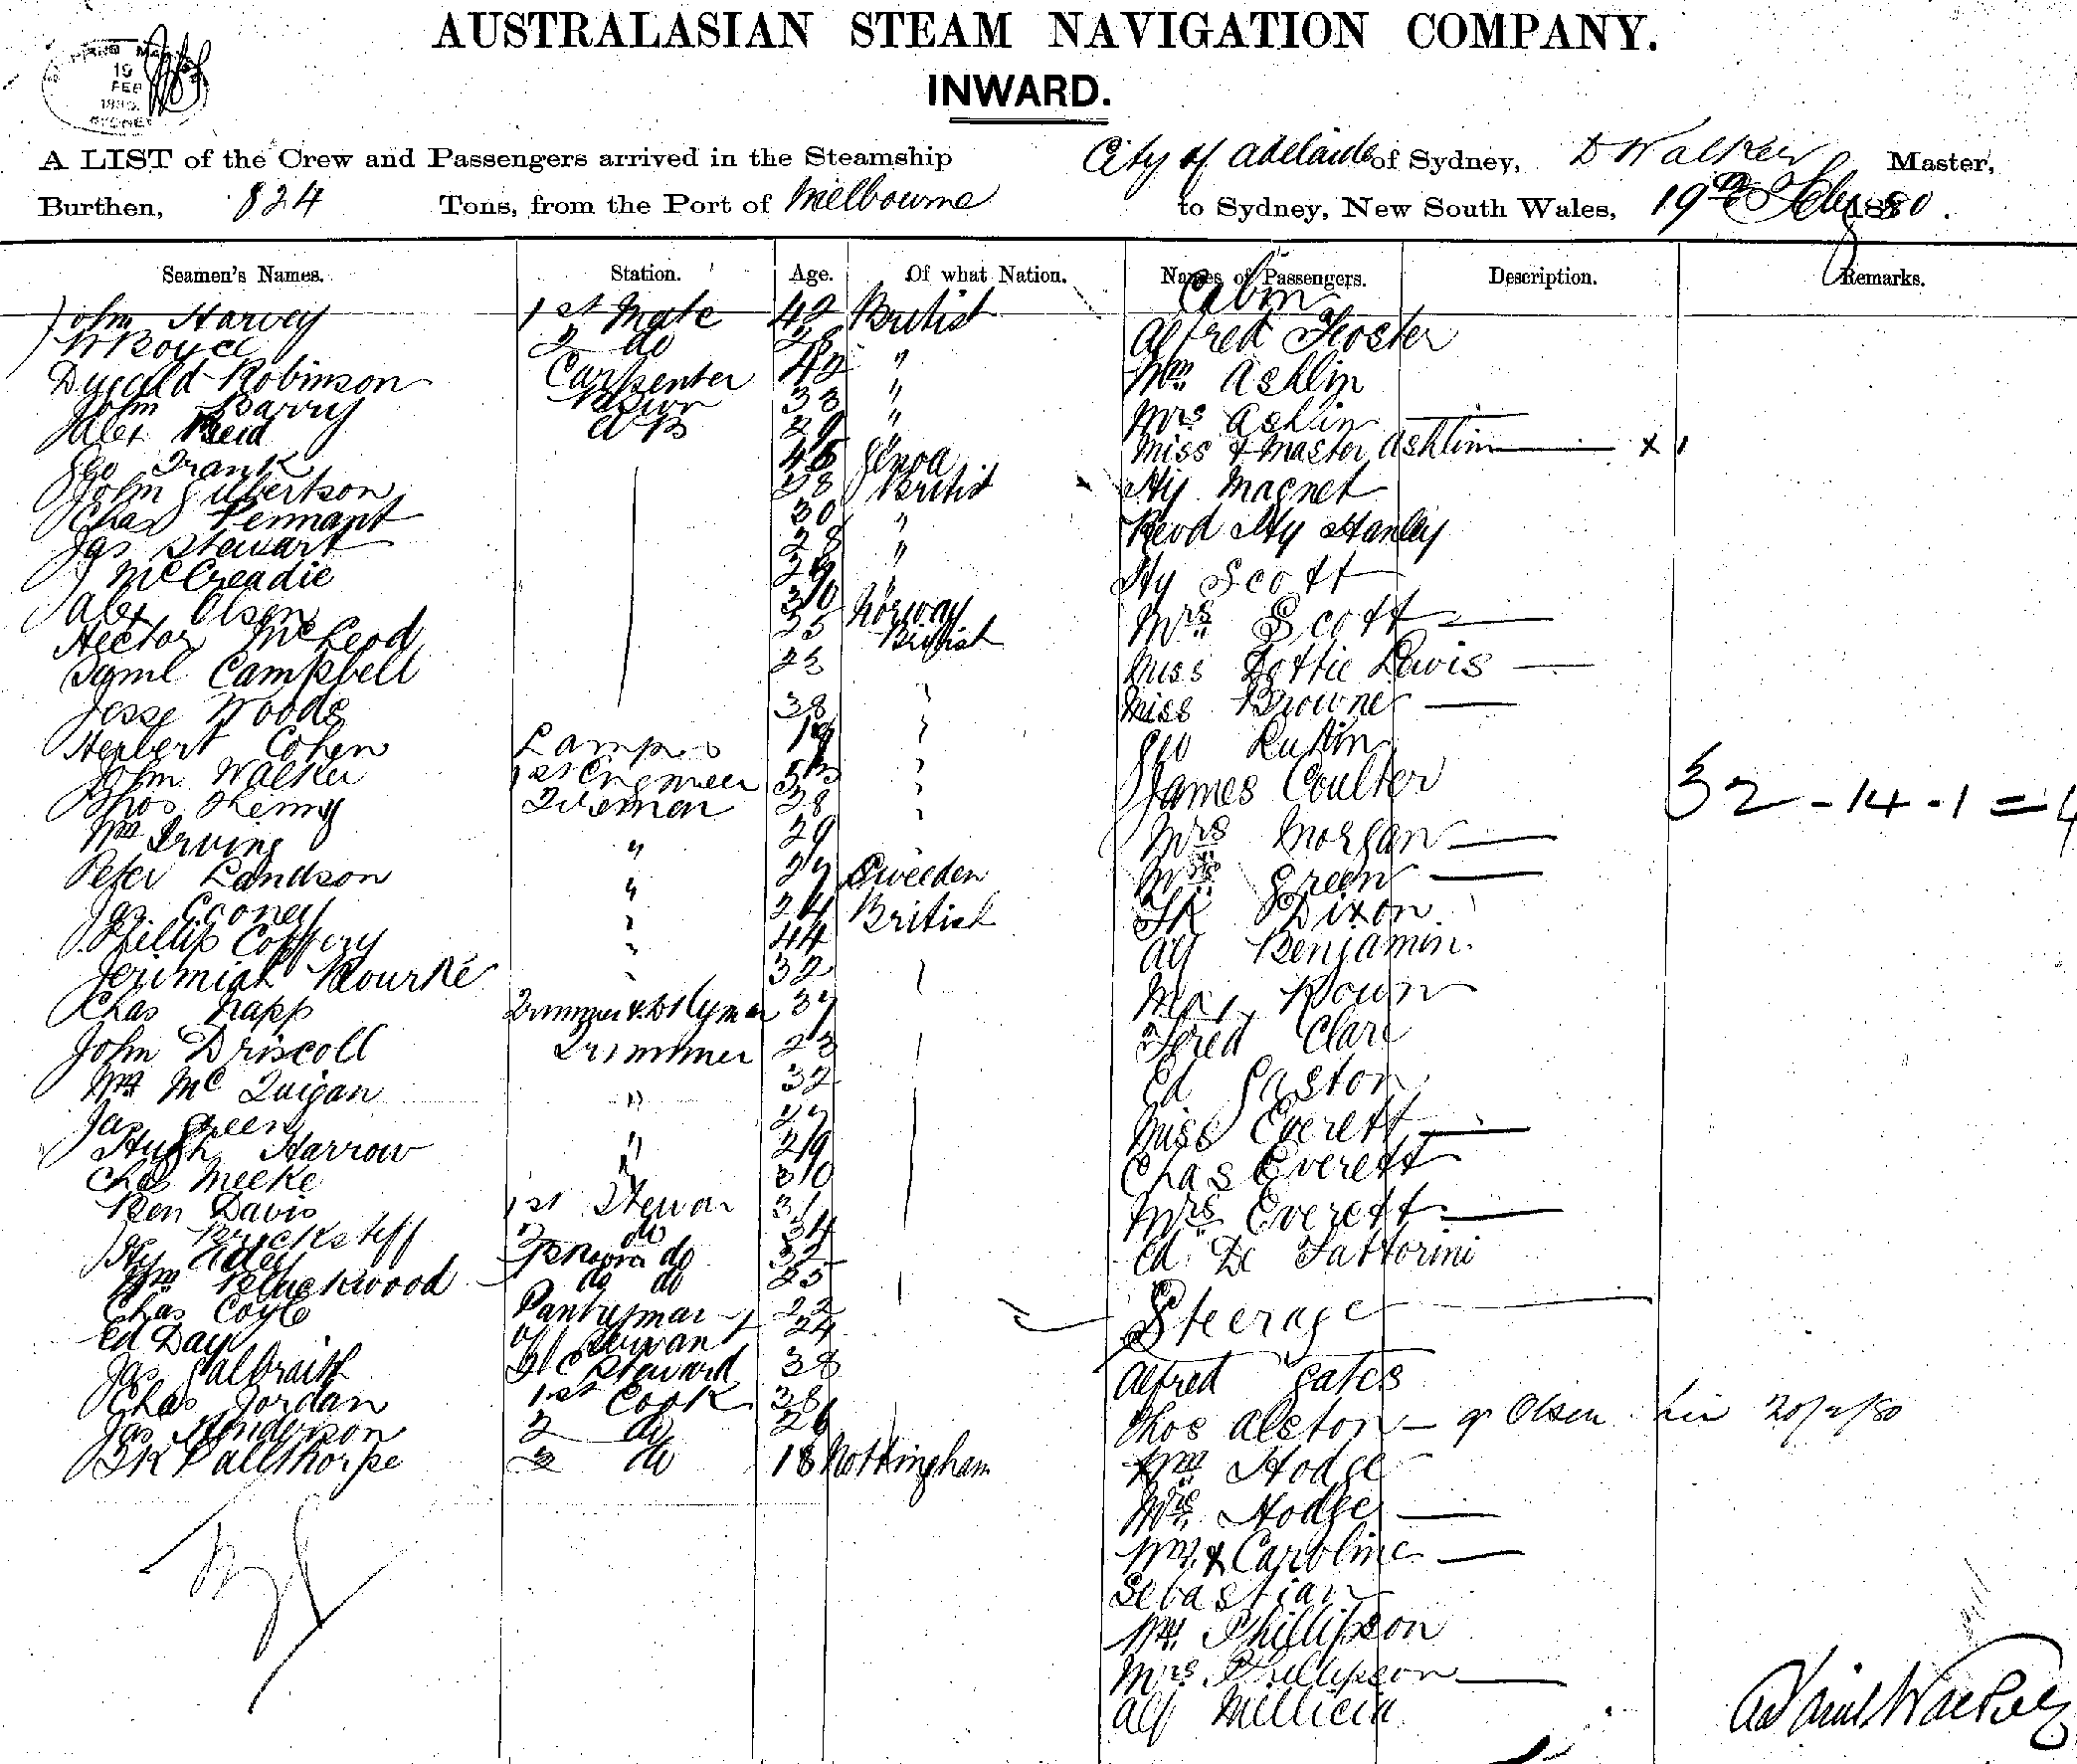 AUSTRALASIAN STEAM NAVIGATION COMPANY.
INWARD.
19
FEB
SYDNEY
A LIST of the Crew and Passengers arrived in the Steamship City of Adelaide of Sydney, D Walker Master,
Burthen, 824 Tons, from the Port of Melbourne to Sydney, New South Wales, 19th Feby 1880.
Seamen's Names. Station. Age. Of what Nation. Names of Passengers. Description. Remarks.
Cabin
John Harvey 1st Mate 42 British Alfred Foster
W Boyce 2 do 28 "
Dugald Robinson Carpenter 42 " Wm Ashlin
John Barry 33 " Mrs Ashlin
Alex Reid AB 29 Miss & Master Ashlin x 1
Geo Frank 45 Genoa
John Gilbertson 28 British Hy Magnet
Chas Pennant 30 " Revd Hy Stanley
Jas Stewart 28 "
J McCreadie Hy Scott
Alex Olsen 30 Norway Mrs Scott
Hector McLeod 25 British
Saml Campbell 23 Miss Dottie Lewis
Jesse Woods 38 Miss Browne
Herbert Cohen Lamps 19 Geo
John Walker 1st Engineer James Coulter
Thos Kenny Fireman 28 32 - 14 - 1 =
Wm Irving " 29 Mrs Morgan
Peter Landson " 27 Sweeden Mrs Green
Jas Cooney 24 British Dixon
Phillip 44 Alf Benjamin
Jerimiah Rourke 32
Chas Napp Trimmer & 37 Max
John Driscoll Trimmer 23 Fred Clare
Wm McQuigan " 32 Ed Gaston
Jas Green 27 Miss Everett
Hugh Harrow " 29 Chas Everett
Chas Meeke 30
Ben Davis 1st Stewar 31 Mrs Everett
2 do 34 Ed De Fattorini
Hy do 32
Wm Bluckwood do do 25
Steerage
Chas Coyle Pantryman 22
Ed Day 24
Jas Galbraith Steward 38 Alfred Gates
Chas Jordan 1st Cook 38 Thos Alston Olsen 20/2/80
Jas Henderson 2 do 26
Palethorpe 3 do 18 Nottingham Wm Hodge
Mrs Hodge
Wm & Caroline
Sebastian
Wm Phillipson
Mrs Phillipson
Alf